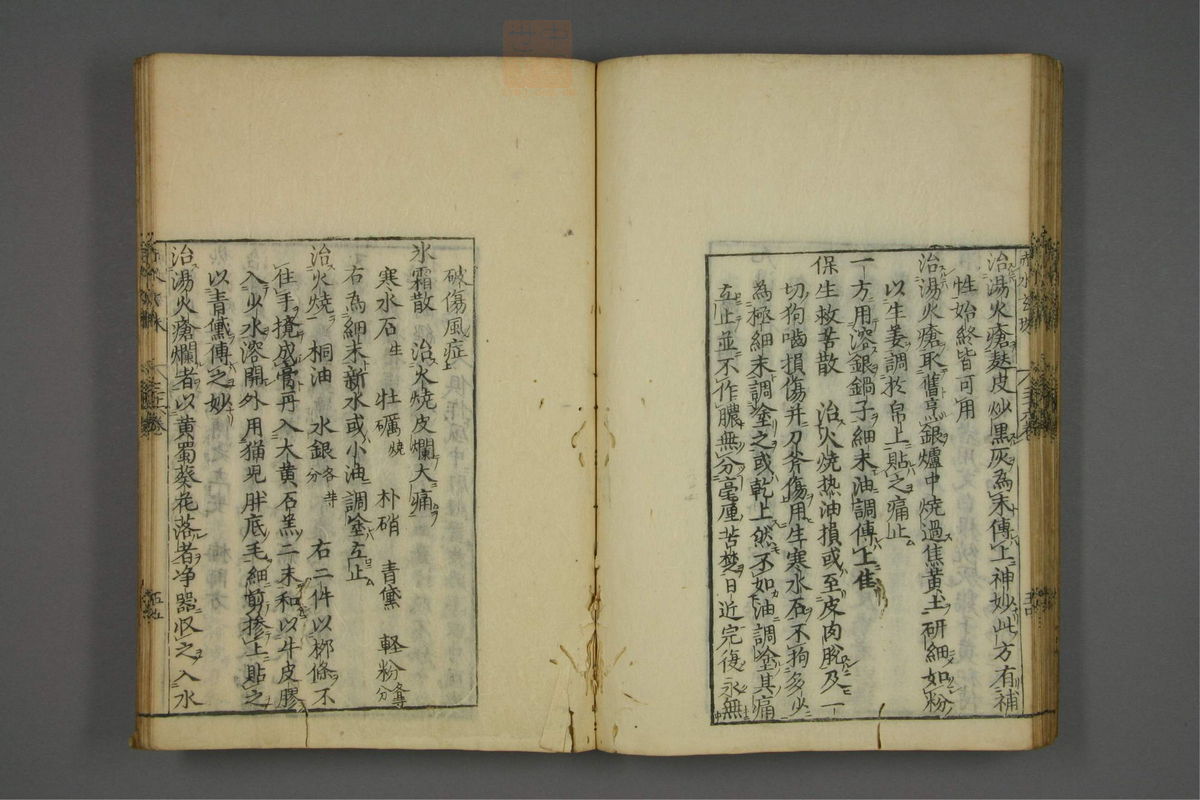 治湯火瘡麩皮炒黒灰為末傅上神妙此方有補
性始終皆可用
治湯火瘡取舊烹銀爐中燒過焦黄土研細如粉
以生姜調於帛上貼之痛止
一方用溶銀鍋子細末油調傅上佳
保生救苦散 治火燒热油損或至皮肉脫及一
切狗嚙損傷并刀斧傷用生寒水石不拘多少
為極細末調塗之或乾上然不如油調塗其痛
立止並不作膿無分毫厘苦楚日近完復永無
破傷風症
氷霜散 治火燒皮爛大痛
寒水石生 牡礪燒 朴硝 青黛 軽粉各等分
右為細末新水或小油調塗立止
治火燒 桐油 水銀各等分 右二件以柳條不
住手攪成膏再入大黄石羔二末和以牛皮膠
入少水溶開外用猫児胖底毛細剪摻上貼之
以青黛傅之妙
治湯火瘡爛者以黄蜀葵花落者净器収之入水